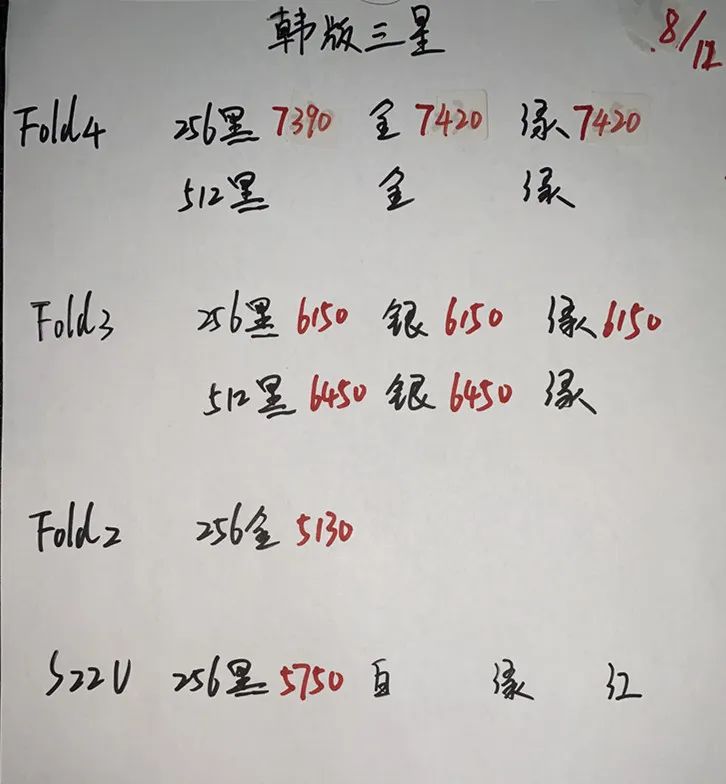 韩版三星
8/12
Fold4 256黑 7390 金 7420 绿 7420
512黑 金 绿
Fold3 256黑 6150 银 6150 绿 6150
512黑 6450 银 6450 绿
Fold2 256金 5130
S22U 256黑 5750 白 绿 红